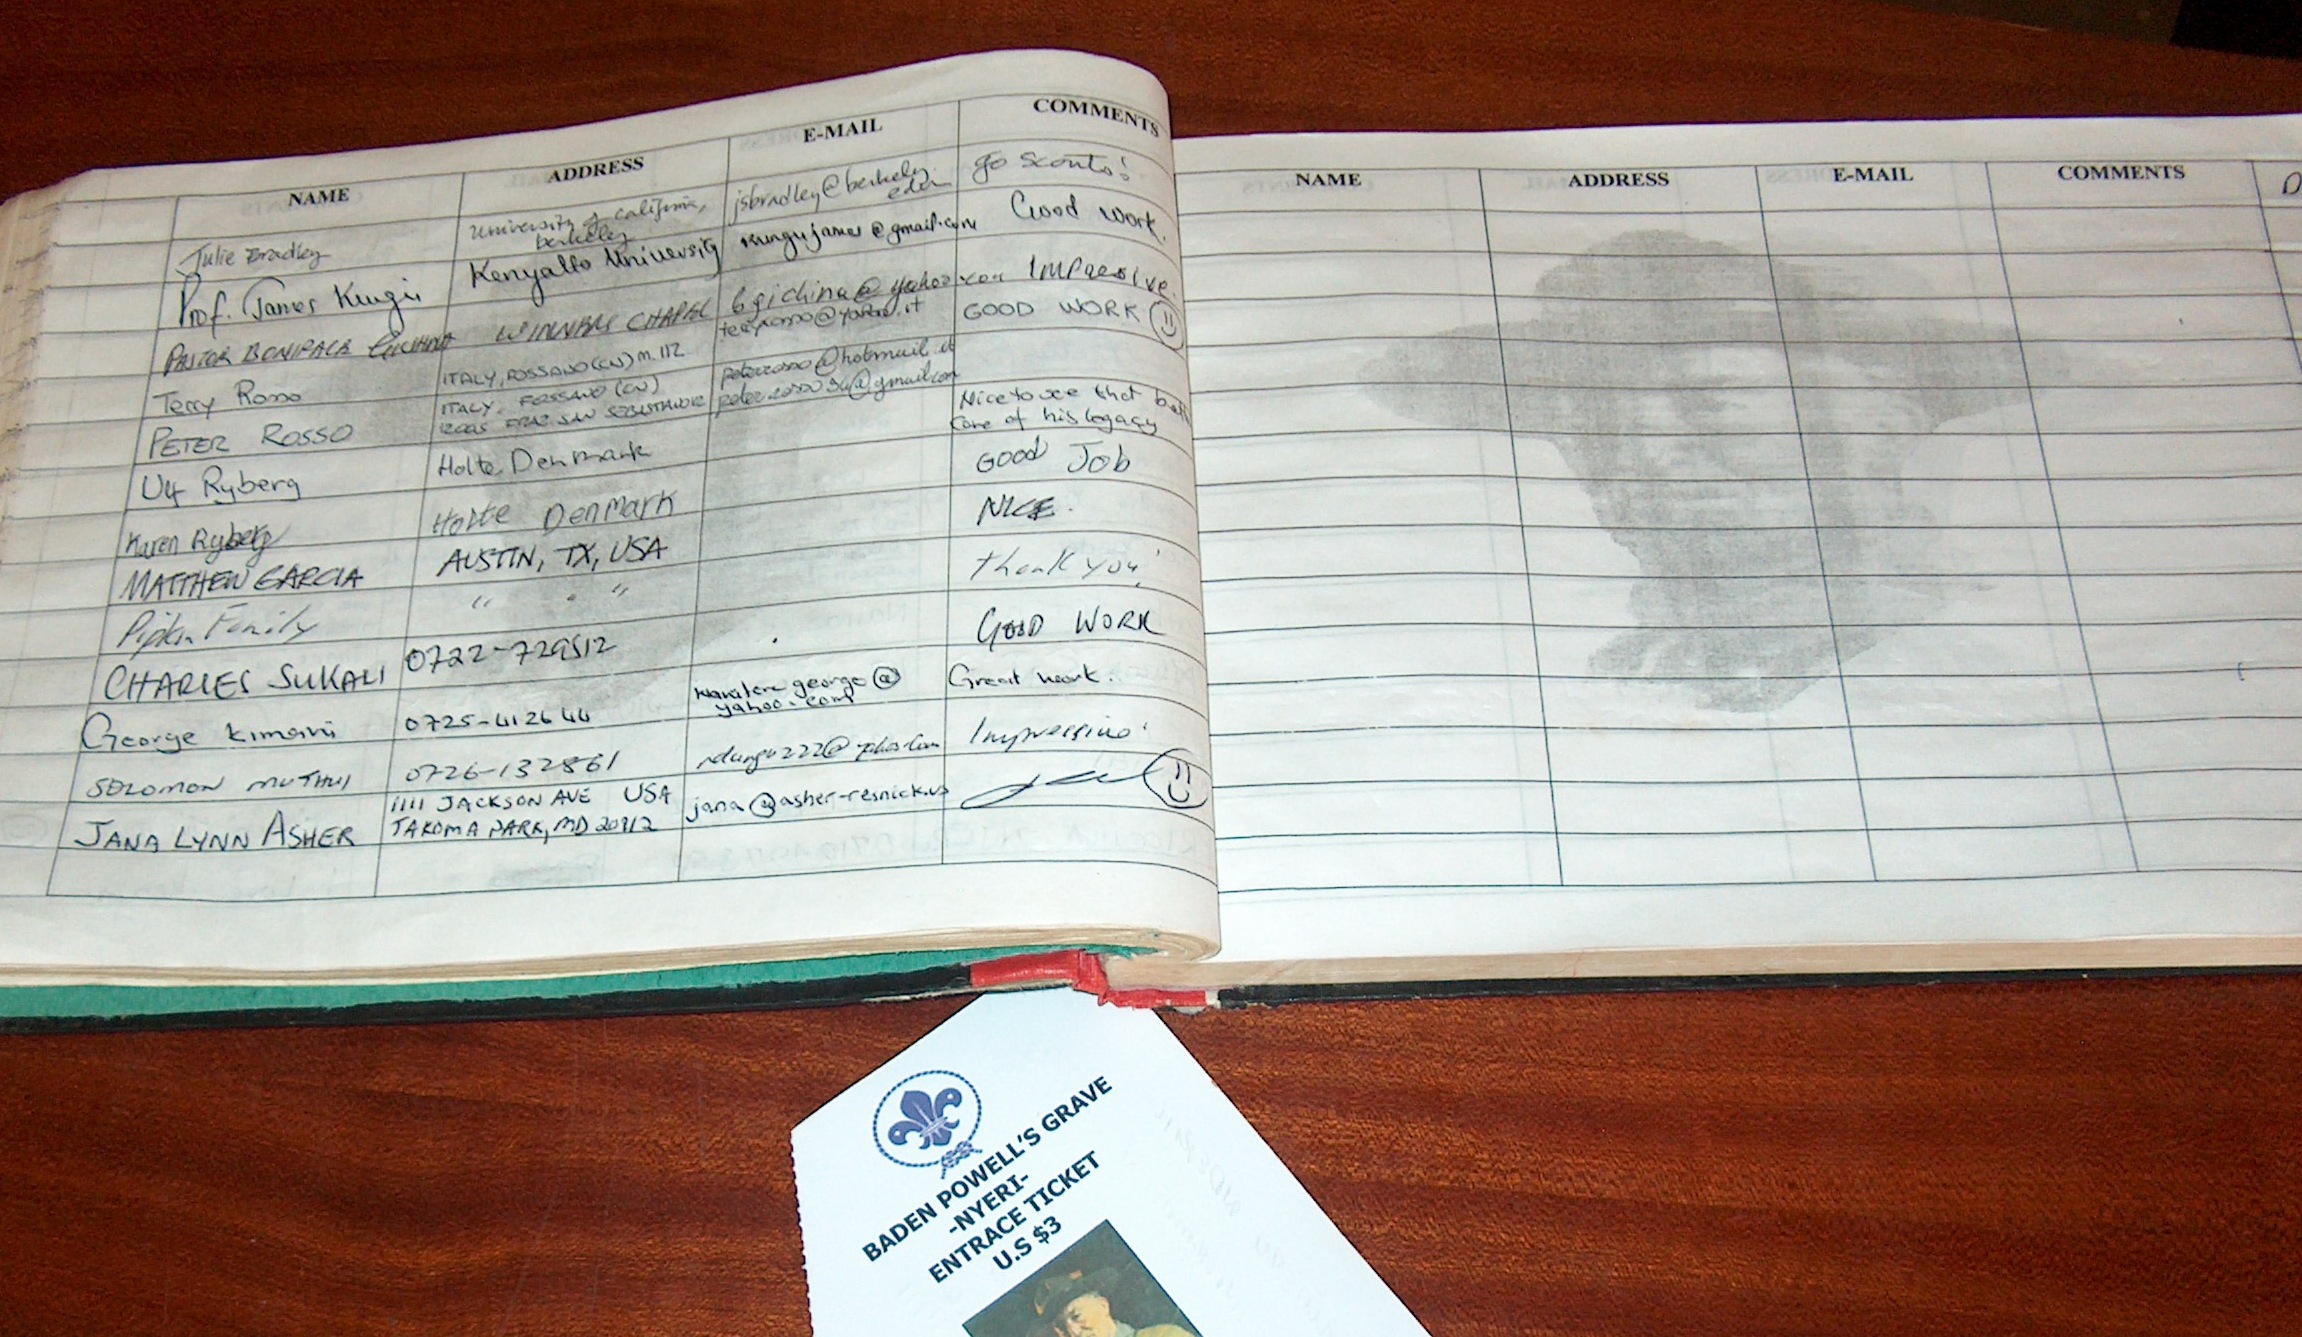 NAME ADDRESS E-MAIL COMMENTS
Julie Bradley University of California, berkeley jsbradley@berkeley.edu go scouts!
Prof. James Kungu Kenyatta University kungujames@gmail.com Good work.
PASTOR BONIFACE WINNERS CHAPEL bgichina@yahoo.com Impressive.
Terry Rosso ITALY, FOSSANO (CN) GOOD WORK
PETER ROSSO ITALY FOSSANO (CN)
12045 FRAZ. SAN SEBASTIANO
Ulf Ryberg Holte Denmark Nice to see that
care of his legacy
Karen Ryberg Holte Denmark GOOD JOB
MATTHEW GARCIA AUSTIN, TX, USA NICE.
Pipkin Family " " thank you!
CHARLES SUKALI 0722-729512 GOOD WORK
George Kimani 0725-412644 george@
yahoo.com Great work.
SOLOMON MUTHUI 0726-132861 Impressive!
JANA LYNN ASHER 1111 JACKSON AVE USA jana@asher-resnick.us
TAKOMA PARK, MD 20912
NAME ADDRESS E-MAIL COMMENTS D
BADEN POWELL'S GRAVE
-NYERI-
ENTRACE TICKET
U.S $3